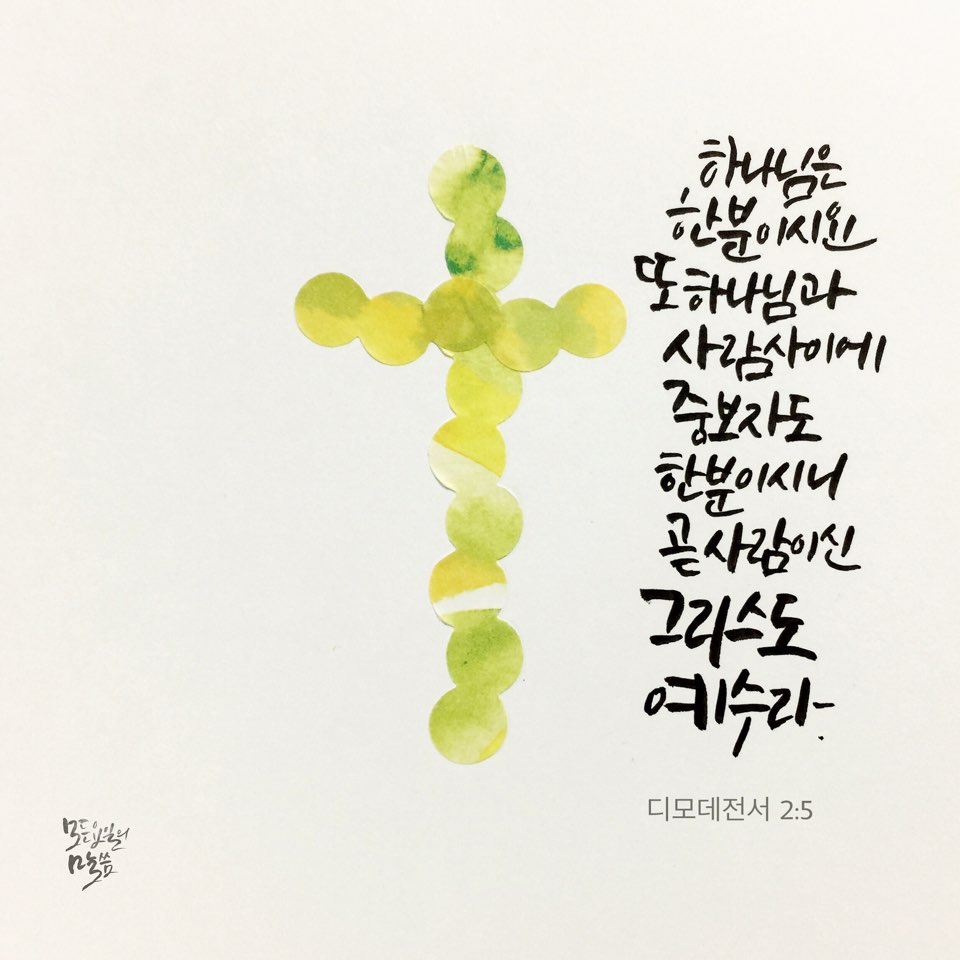 하나님은
한분이시요
또 하나님과
사람사이에
중보자도
한분이시니
곧 사람이신
그리스도
예수라.
디모데전서 2:5
말씀